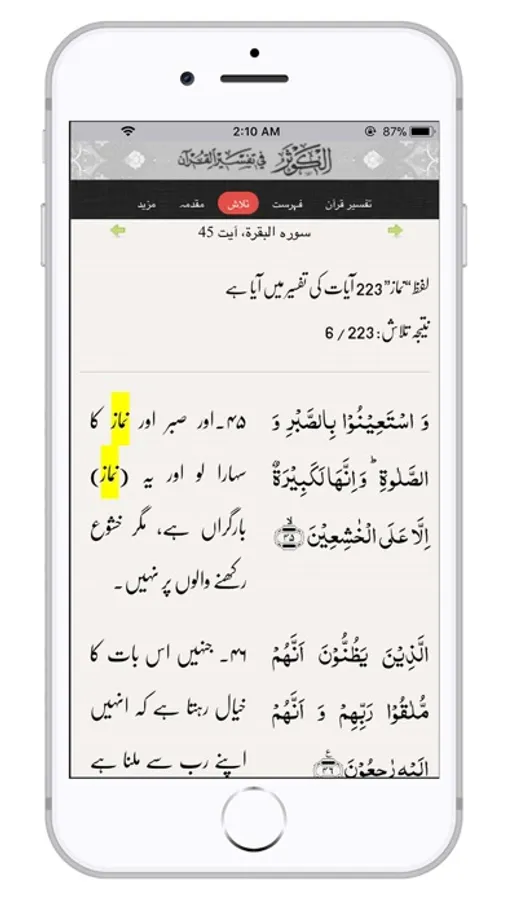 2:10 AM 87%
الکوثر فی تفسیر القرآن
تفسیر قرآن فہرست تلاش مقدمہ مزید
سورہ البقرۃ، آیت 45
لفظ "نماز" 223 آیات کی تفسیر میں آیا ہے
نتیجہ تلاش: 223 / 6
وَ اسۡتَعِیۡنُوۡا بِالصَّبۡرِ وَ
الصَّلٰوۃِ ؕ وَ اِنَّهَا لَکَبِیۡرَۃٌ
اِلَّا عَلَی الۡخٰشِعِیۡنَ ﴿ۙ۴۵﴾
۴۵۔اور صبر اور نماز کا
سہارا لو اور یہ (نماز)
بارگراں ہے، مگر خشوع
رکھنے والوں پر نہیں۔
الَّذِیۡنَ یَظُنُّوۡنَ اَنَّهُمۡ
مُّلٰقُوۡا رَبِّهِمۡ وَ اَنَّهُمۡ
اِلَیۡهِ رٰجِعُوۡنَ ﴿٪۴۶﴾
۴۶۔ جنہیں اس بات کا
خیال رہتا ہے کہ انہیں
اپنے رب سے ملنا ہے